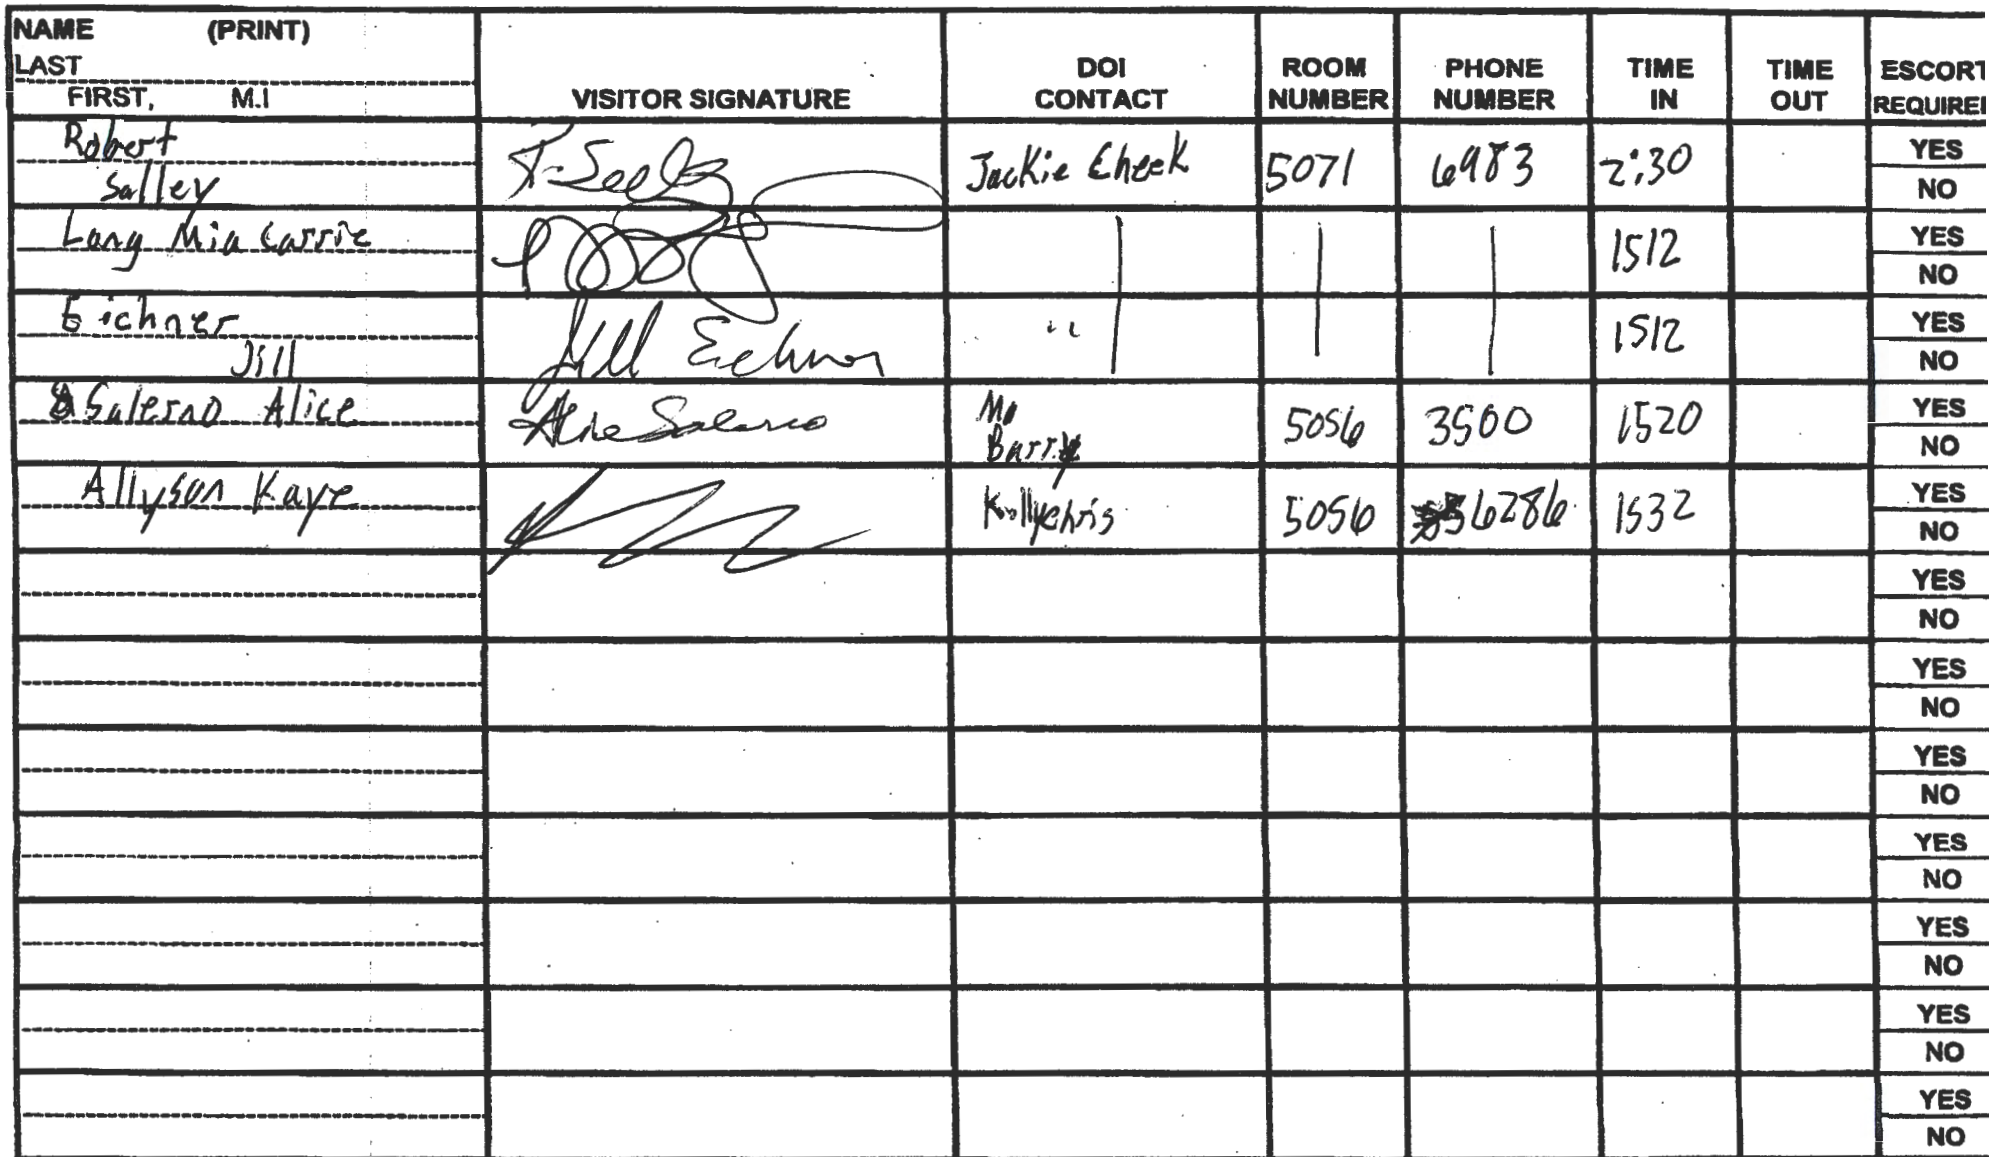 NAME (PRINT)
LAST
FIRST, M.I
VISITOR SIGNATURE
DOI
CONTACT
ROOM
NUMBER
PHONE
NUMBER
TIME
IN
TIME
OUT
ESCORT
REQUIRE
Robert
Salley
Jackie Cheek 5071 6983 2:30
YES
NO
Lang Mia Carrie
1512
YES
NO
Eichner
Jill
Jill Eichner
1512
YES
NO
Salerno Alice
Alice Salerno
Mo
Barry
5056 3500 1520
YES
NO
Allyson Kaye
5056 6286 1532
YES
NO
YES
NO
YES
NO
YES
NO
YES
NO
YES
NO
YES
NO
YES
NO